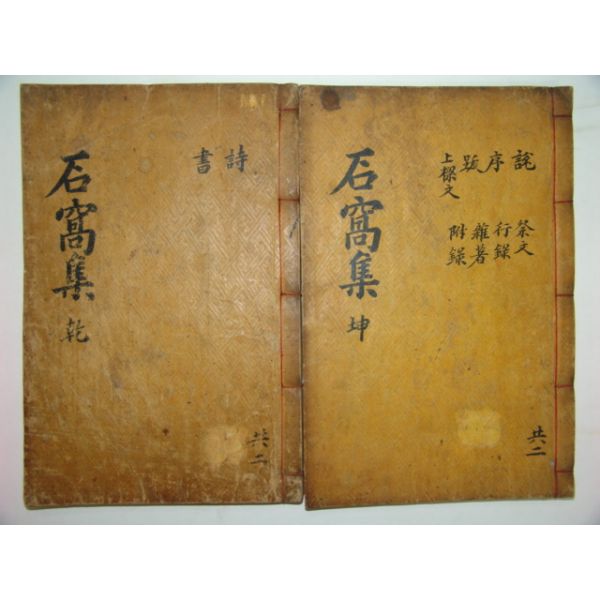 石窩集 乾
詩
書
共二
石窩集 坤
說 祭文
序 行錄
跋 雜著
上樑文 附錄
共二